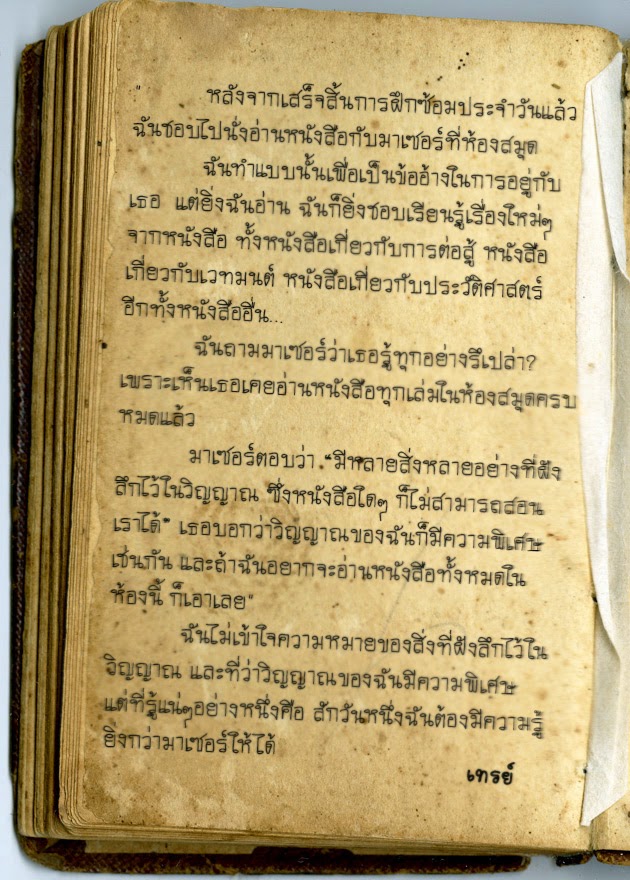 หลังจากเสร็จสิ้นการฝึกซ้อมประจำวันแล้ว
ฉันชอบไปนั่งอ่านหนังสือกับมาเซอร์ที่ห้องสมุด
ฉันทำแบบนั้นเพื่อเป็นข้ออ้างในการอยู่กับ
เธอ แต่ยิ่งฉันอ่าน ฉันก็ยิ่งชอบเรียนรู้เรื่องใหม่ๆ
จากหนังสือ ทั้งหนังสือเกี่ยวกับการต่อสู้ หนังสือ
เกี่ยวกับเวทมนต์ หนังสือเกี่ยวกับประวัติศาสตร์
อีกทั้งหนังสืออื่น...
ฉันถามมาเซอร์ว่าเธอรู้ทุกอย่างรึเปล่า?
เพราะเห็นเธอเคยอ่านหนังสือทุกเล่มในห้องสมุดครบ
หมดแล้ว
มาเซอร์ตอบว่า "มีหลายสิ่งหลายอย่างที่ฝัง
ลึกไว้ในวิญญาณ ซึ่งหนังสือใดๆ ก็ไม่สามารถสอน
เราได้" เธอบอกว่าวิญญาณของฉันก็มีความพิเศษ
เช่นกัน และถ้าฉันอยากจะอ่านหนังสือทั้งหมดใน
ห้องนี้ ก็เอาเลย"
ฉันไม่เข้าใจความหมายของสิ่งที่ฝังลึกไว้ใน
วิญญาณ และที่ว่าวิญญาณของฉันมีความพิเศษ
แต่ที่รู้แน่ๆอย่างหนึ่งคือ สักวันหนึ่งฉันต้องมีความรู้
ยิ่งกว่ามาเซอร์ให้ได้
เทรย์